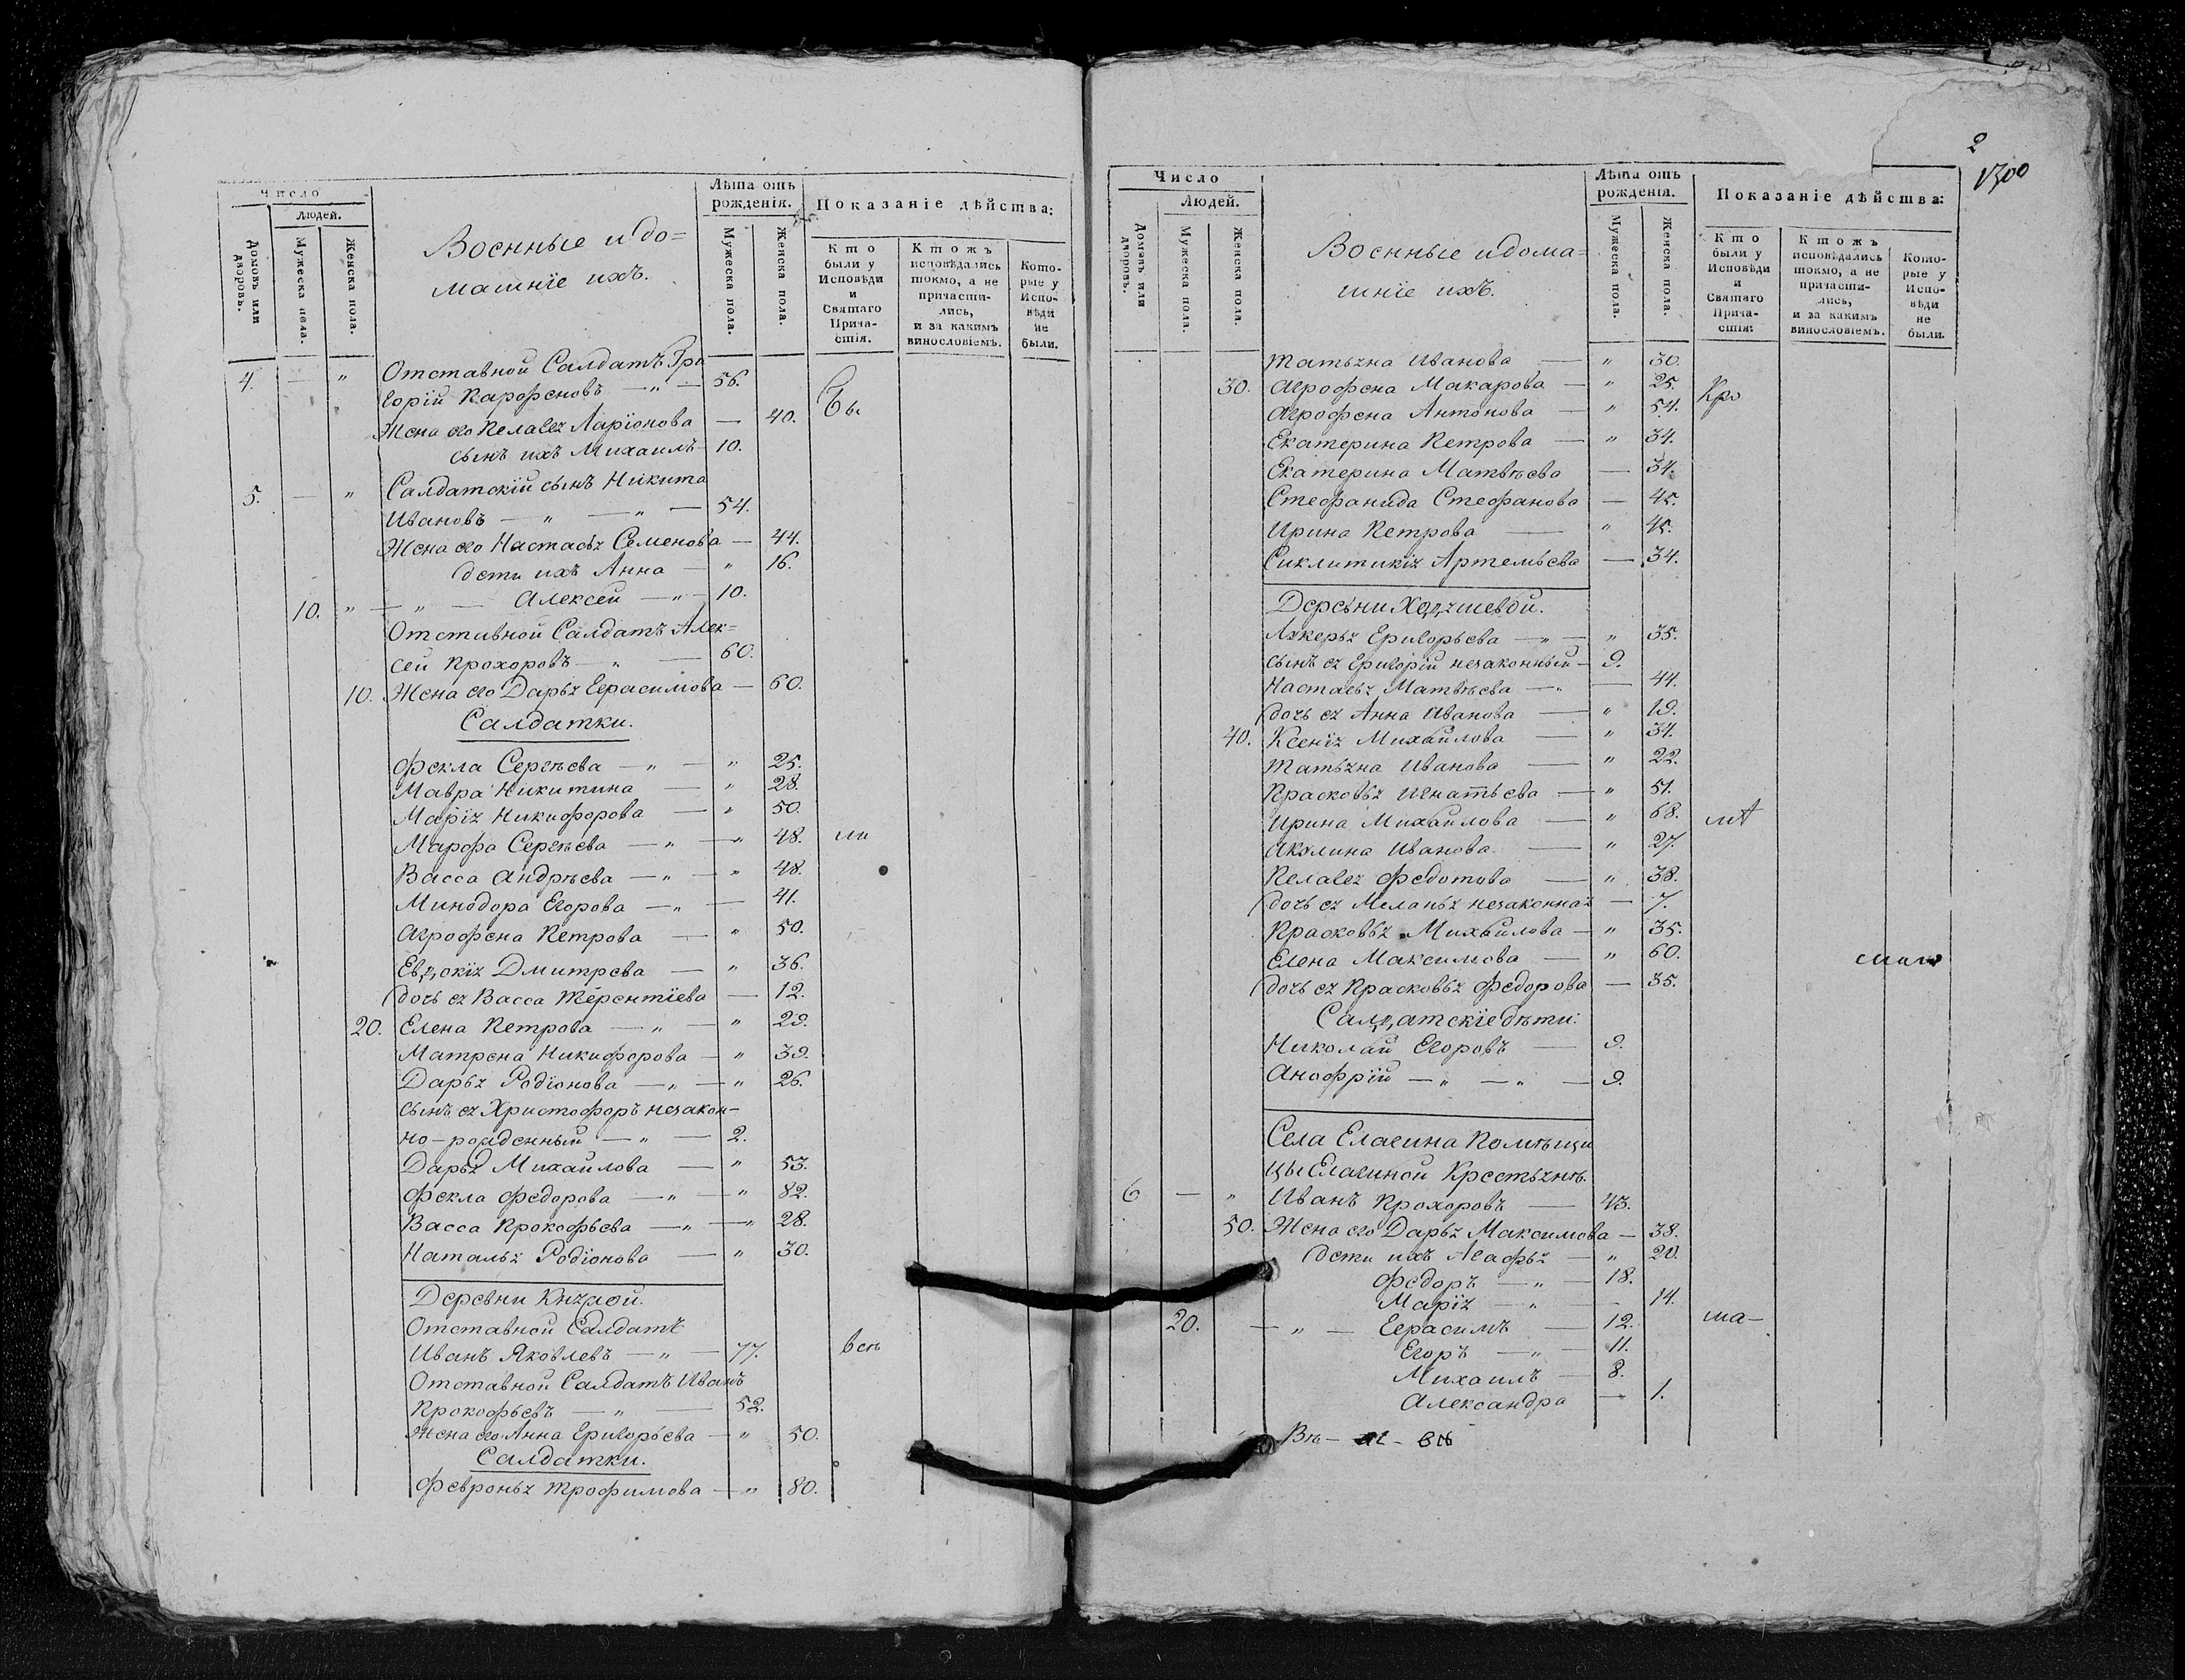 Число
Людей.
Домовъ или дворовъ.
Мужеска пола.
Женска пола.
Военные и до=
машнїе ихъ.
Лѣта отъ рожденія.
Мужеска пола.
Женска пола.
Показаніе дѣйства:
Кто были у Исповѣди и Святаго Прича-стія.
Ктожъ исповѣдались токмо, а не причасти-лись, и за какимъ винословіемъ.
Кото-рые у Испо-вѣди не были.
4. — " Отставной Салдатъ Гри
горїй Парфеновъ — " — 56.
Жена его Пелагея Ларїонова — 40. Бы
сынъ ихъ Михаилъ 10.
5. — " Салдатскїй сынъ Никита
Ивановъ — " — " — 54.
Жена его Настасья Семенова — 44.
дети ихъ Анна — " 16.
10. " — " — Алексей — " — 10.
Отставной Салдатъ Алек=
сей Прохоровъ — " — 60.
10. Жена его Дарья Герасимова — 60.
Салдатки.
Фекла Сергѣева — " — " 25.
Мавра Никитина — " 28.
Марїя Никифорова — " 50.
Марфа Сергѣева — " — " 48. ли
Васса Андрѣева — " — " 48.
Минодора Егорова — " — 41.
Агрофена Петрова — " 50.
Евдокїя Дмитрева — " 36.
дочь ея Васса Терентїева — 12.
20. Елена Петрова — " — " 29.
Матрена Никифорова — " 39.
Дарья Родїонова — " — " 26.
сынъ ея Христофоръ незакон-
но-рожденный — " — 2.
Дарья Михайлова — " 53.
Фекла Федорова — " — " 82.
Васса Прокофьева — " — " 28.
Наталья Родїонова — " 30.
Деревни Княжой.
Отставной Салдатъ
Иванъ Яковлевъ — " — 77. всѣ
Отставной Салдатъ Иванъ
Прокофьевъ — " — 52.
Жена его Анна Григорьева — " 50.
Салдатки.
Февронья Трофимова — " 80.
2
1300
Число
Людей.
Домовъ или дворовъ.
Мужеска пола.
Женска пола.
Военные и дома=
шнїе ихъ.
Лѣта отъ рожденія.
Мужеска пола.
Женска пола.
Показаніе дѣйства:
Кто были у Исповѣди и Святаго Прича-стія:
Ктожъ исповѣдались токмо, а не причасти-лись, и за какимъ винословіемъ.
Кото-рые у Испо-вѣди не были.
Татьяна Иванова — " 30.
30. Агрофена Макарова — " 25. Кро
Агрофена Антонова — " 54.
Екатерина Петрова — " 34.
Екатерина Матвѣева — 34.
Стефанида Стефанова — 45.
Ирина Петрова — " 45.
Сиклитикїя Артемьева — 34.
Деревни
Лукерья Григорьева — " — " 35.
сынъ ея Григорїй незаконный — 9.
Настасья Матвѣева — " — 44.
дочь ея Анна Иванова — " 19.
40. Ксенїя Михайлова — " 34.
Татьяна Иванова — " 22.
Прасковья Игнатьева — " 51.
Ирина Михайлова — " 68.
Акулина Иванова — " 27.
Пелагея Федотова — " 38.
дочь ея Меланья незаконная — 7.
Прасковья Михайлова — " 35.
Елена Максимова — " 60.
дочь ея Прасковья Федорова — 35.
Салдатскїе дѣти:
Николай Егоровъ — 9.
Анофрїй — " — " — 9.
Села Елагина Помѣщи
цы Елагиной Крестьянѣ.
6 — " Иванъ Прохоровъ — 43.
50. Жена его Дарья Максимова — 38.
Дети ихъ Агафья — " 20.
Федоръ — " — 18.
Марїя — " — 14.
20. — " — Герасимъ — 12. ма-
Егоръ — " — 11.
Михаилъ — 8.
Александра — 1.